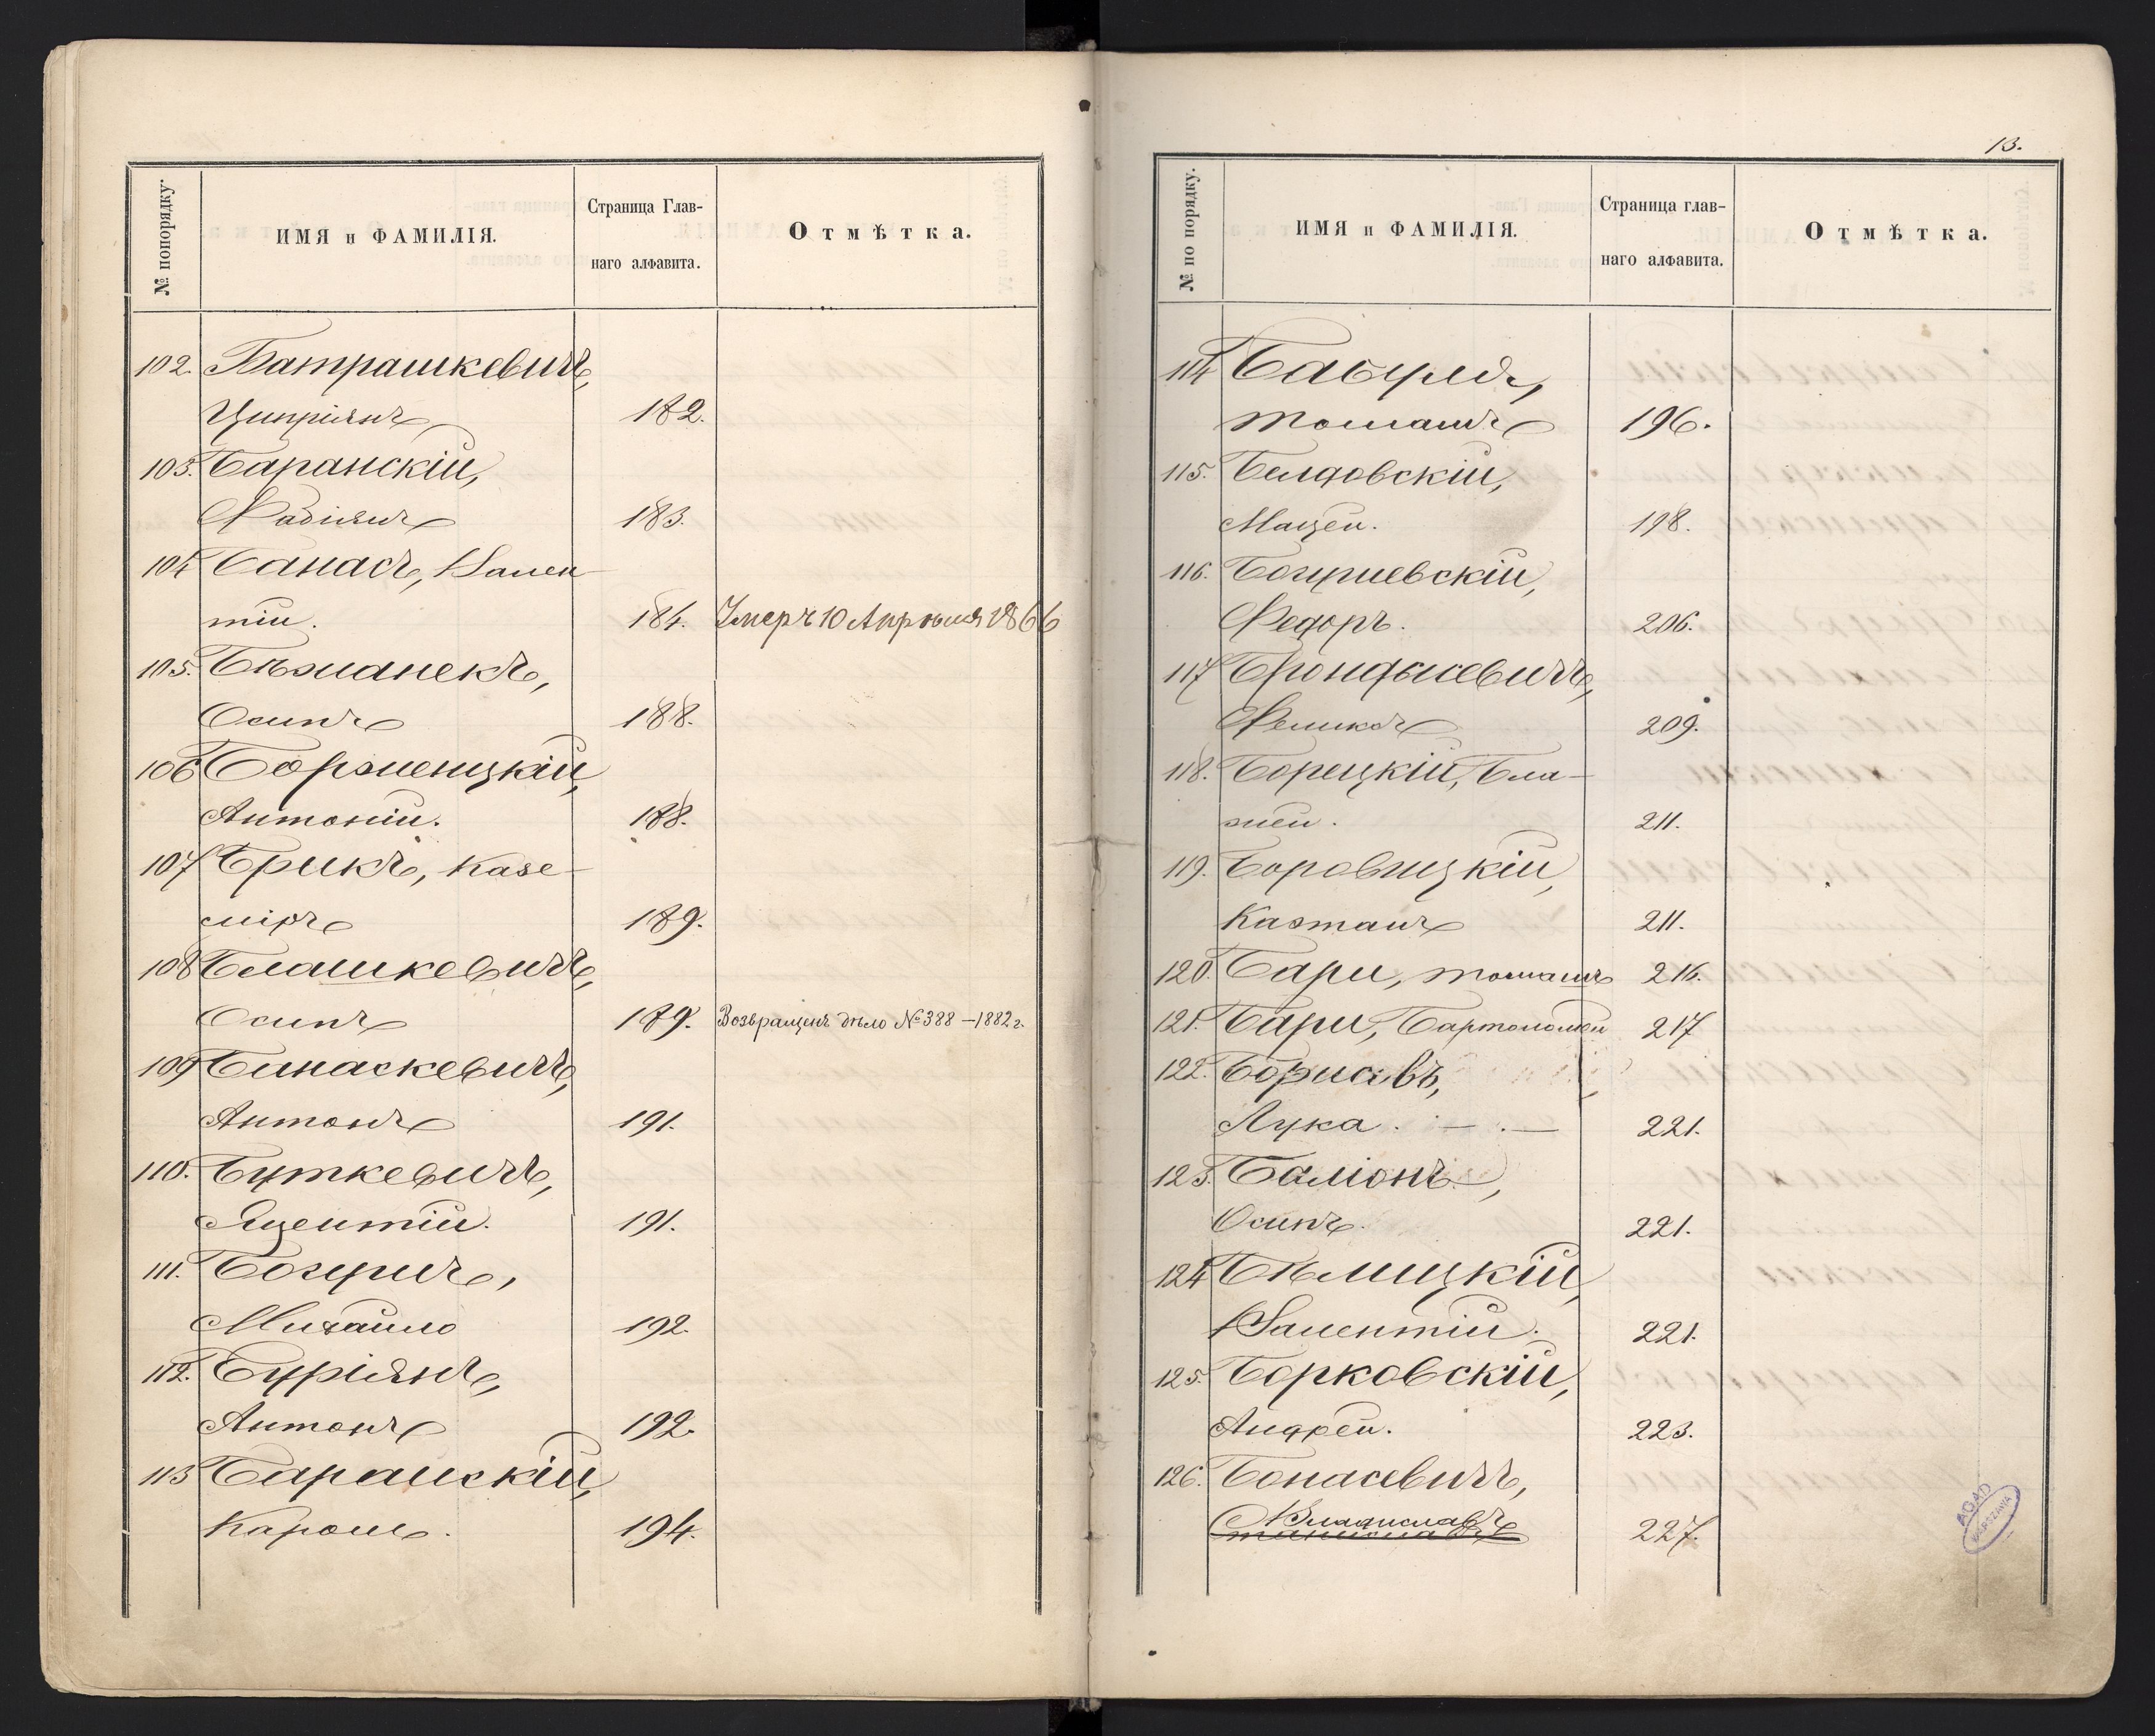 № попорядку.
ИМЯ и ФАМИЛІЯ.
Страница Глав-
наго алфавита.
Отмѣтка.
102. Батрашкевичъ,
Ципріянъ 182.
103. Баранскій,
Фабіянъ 183.
104 Банасъ, Вален-
тій. 184. Умеръ 10 Апрѣля 1866
105. Бѣжанекъ,
Осипъ 188.
106 Борженцкій,
Антоній. 188.
107 Брикъ, Казе-
міръ 189.
108 Блашкевичъ,
Осипъ 189. Возвращенъ дѣло № 388 – 1882 г.
109 Банаскевичъ,
Антонъ 191.
110. Буткевичъ,
Яцентій. 191.
111. Богуричъ,
Михайло 192.
112. Буріянъ,
Антонъ 192.
113 Баранскій,
Кароль. 194.
13.
№ по порядку.
ИМЯ и ФАМИЛІЯ.
Страница глав-
наго алфавита.
Отмѣтка.
114 Бабуля,
Томашъ 196.
115. Белдовскій,
Мацѣй. 198.
116. Богушевскій,
Федоръ. 206.
117 Брондзкевичъ,
Феликсъ 209.
118. Борецкій, Бла-
жей. 211.
119. Боровицкій,
Каэтанъ 211.
120. Бари, Томашъ 216.
121. Бари, Бартоломей 217
122. Борисовъ,
Лука. 221.
123. Баліонъ,
Осипъ. 221.
124 Бѣлицкій,
Валентій. 221.
125. Борковскій,
Андрей. 223.
126. Бонасевичъ,
Владиславъ
Станиславъ 227.
AGAD
WARSZAWA